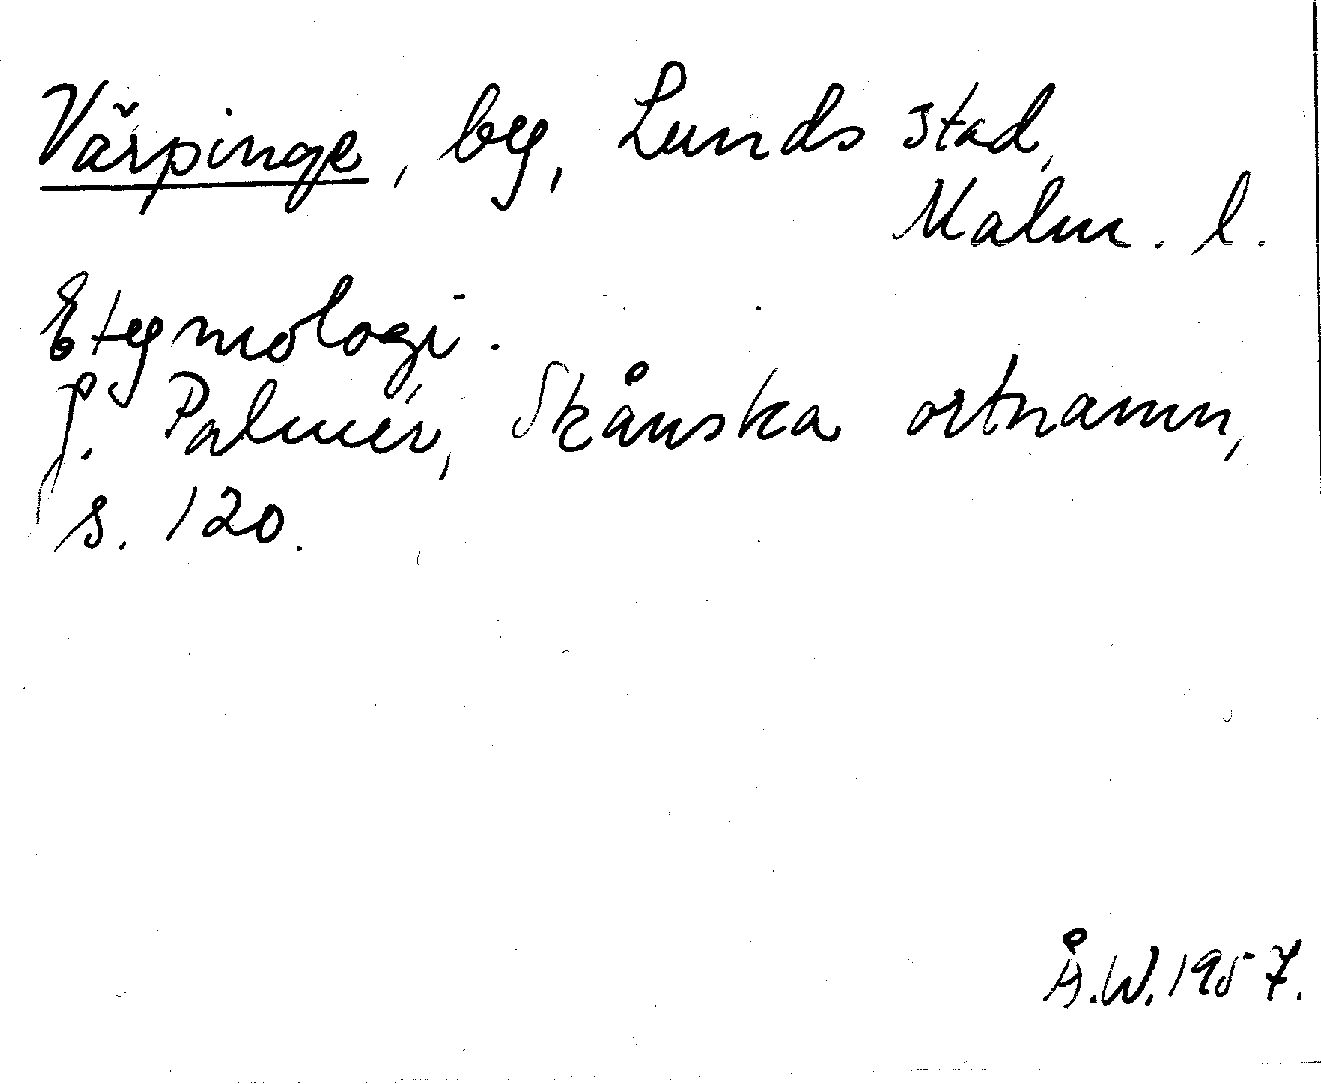 Värpinge, by, Lunds stad,
Malm. l.
Etymologi.
J. Palmér, Skånska ortnamn,
s. 120.
Å.W. 1957.